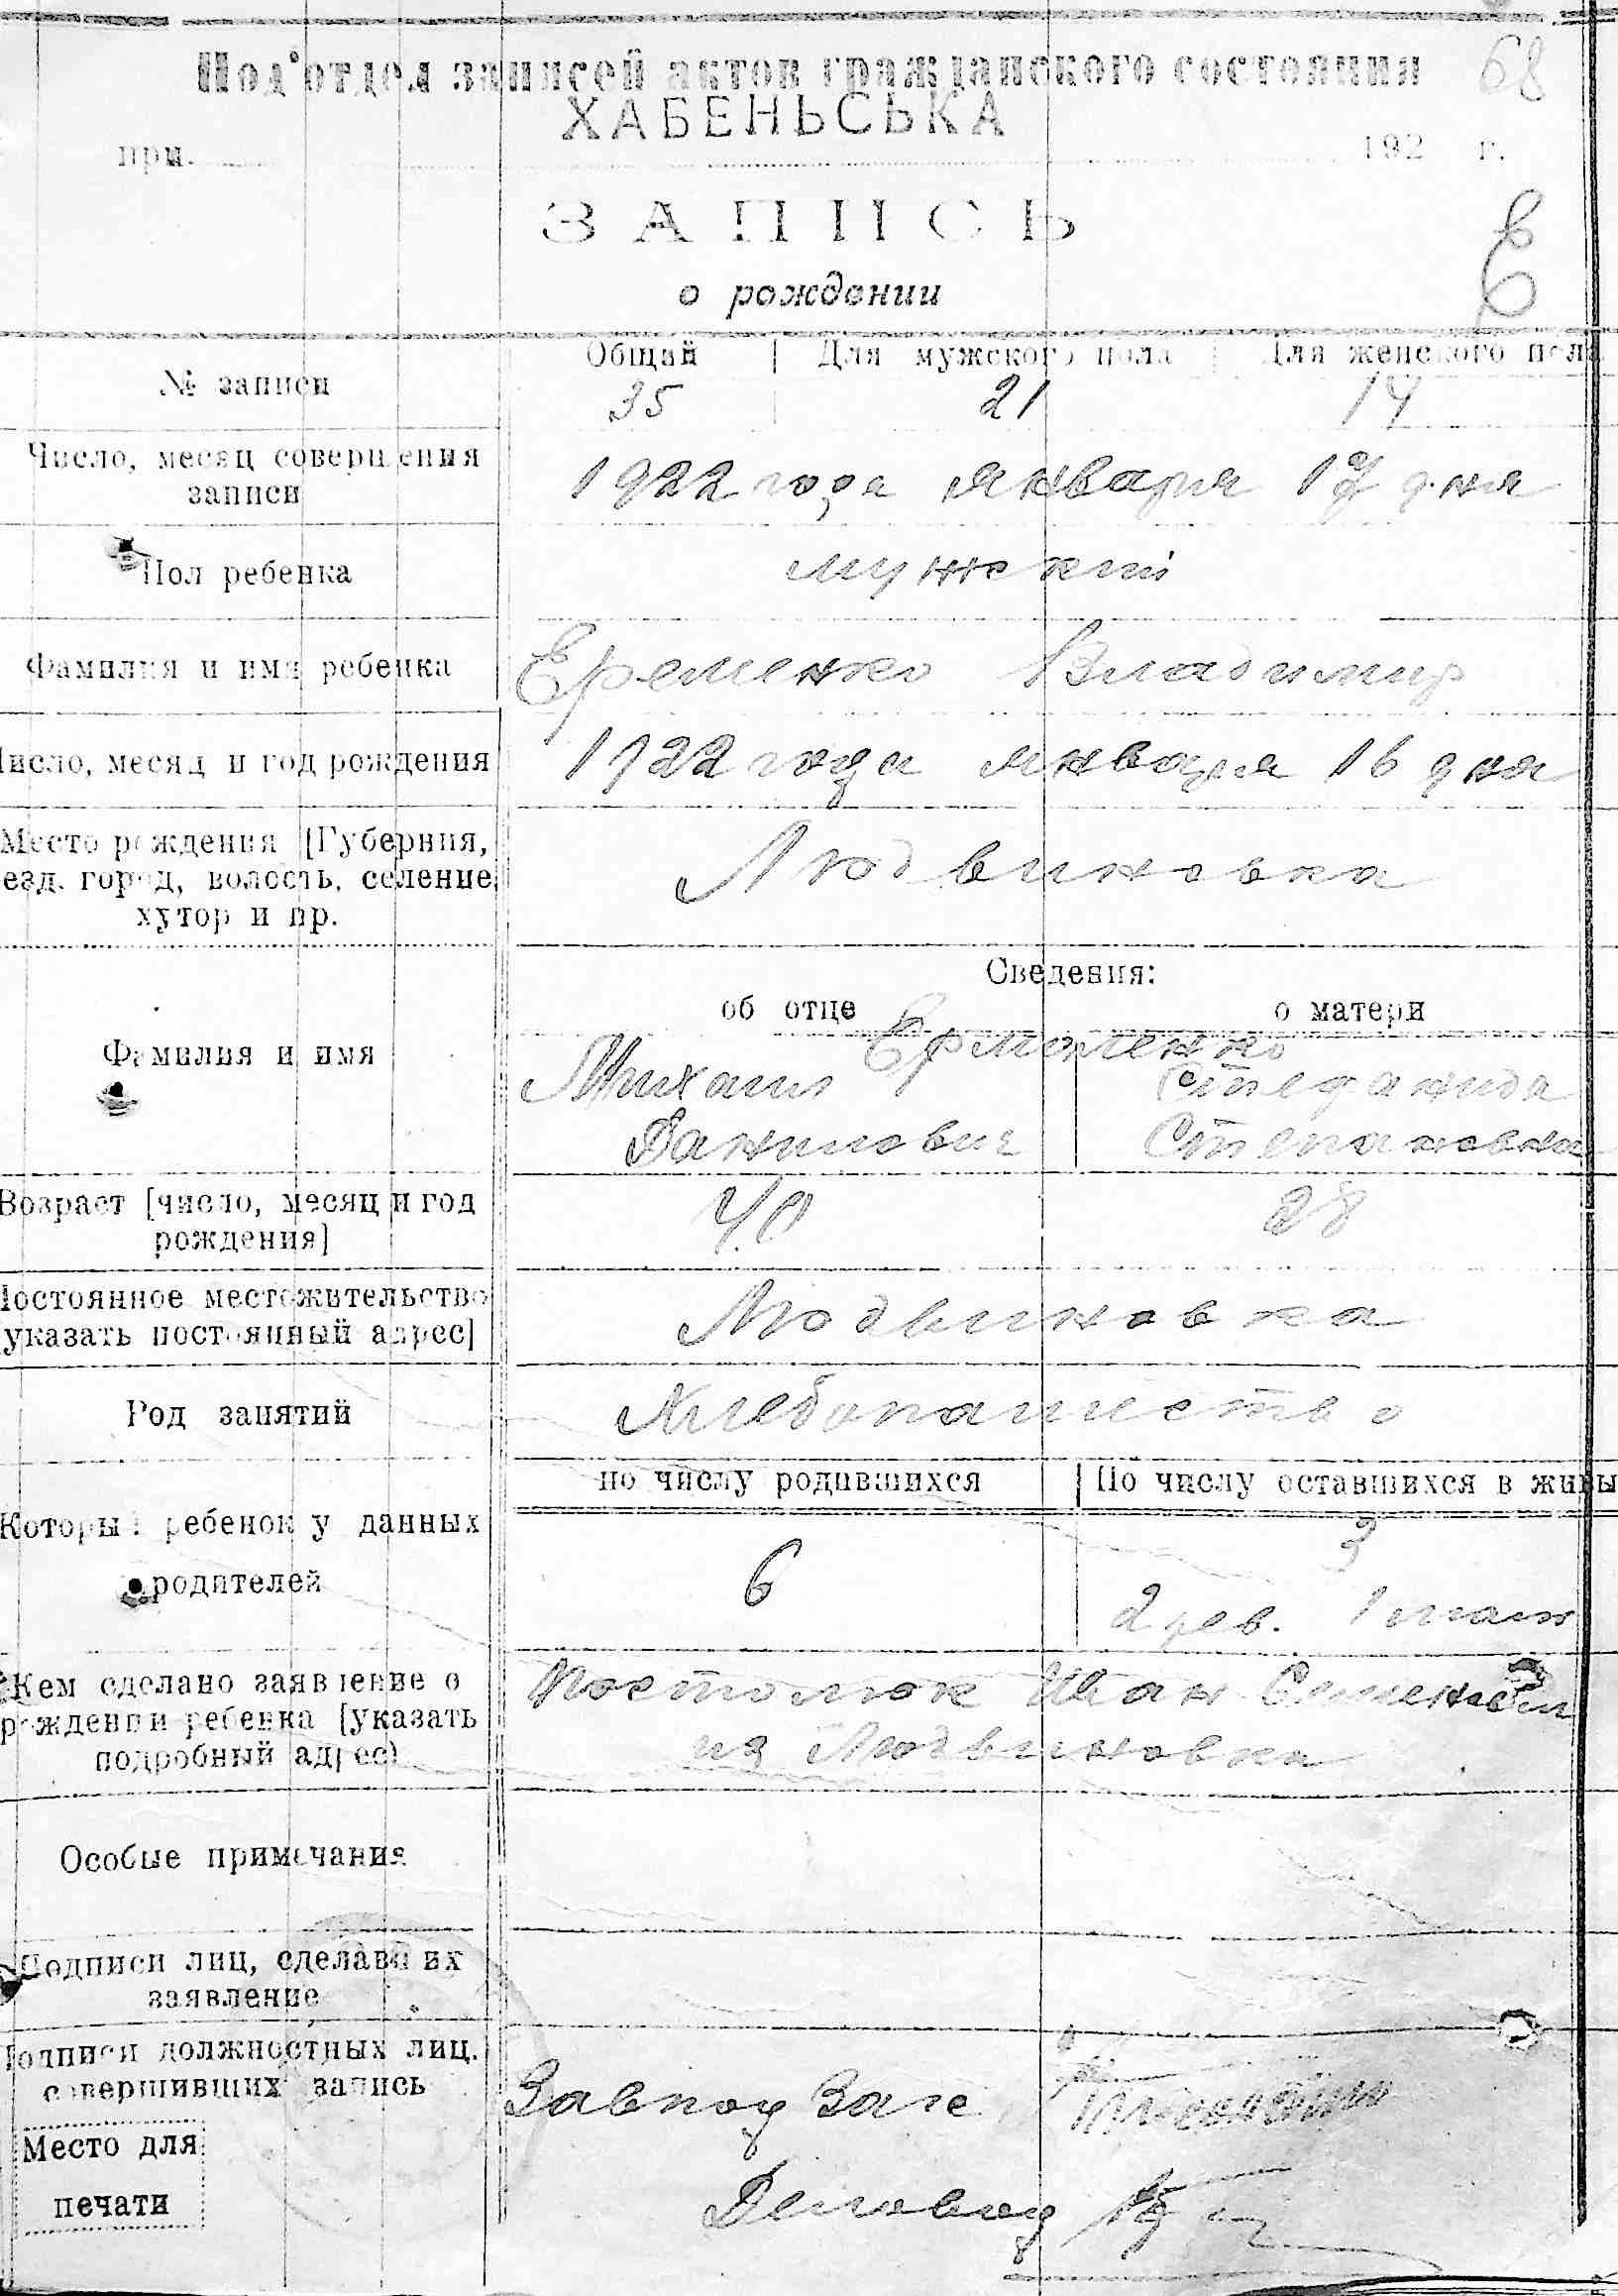 Под'отдел записей актов гражданского состояния 68
ХАБЕНЬСЬКА
при. 192 г.
ЗАПИСЬ
о рождении
Общий Для мужского пола Для женского пола
№ записи 35 21 14
Число, месяц совершения
записи
1922 года января 17 дня
Пол ребенка мужский
Фамилия и имя ребенка Еременко Владимир
Число, месяц и год рождения 1922 года января 16 дня
Место рождения [Губерния,
уезд. город, волость, селение,
хутор и пр.
Людвиновка
Сведения:
об отце о матери
Фамилия и имя Ермоленко
Михаил Степанида
Данилович Степановна
Возраст [число, месяц и год
рождения]
40 28
Постоянное местожительство
[указать постоянный адрес]
Людвиновка
Род занятий Хлебопашество
по числу родившихся По числу оставшихся в живы
Который ребенок у данных
родителей
6 3
2 дев. 1 мал
Кем сделано заявление о
рождении ребенка [указать
подробный адрес)
Костолюк Иван Семенович
из Людвиновка
Особые примечания
Подписи лиц, сделавших
заявление
Подписи должностных лиц.
совершивших запись
Завпод Загс
Место для
печати
Деловод